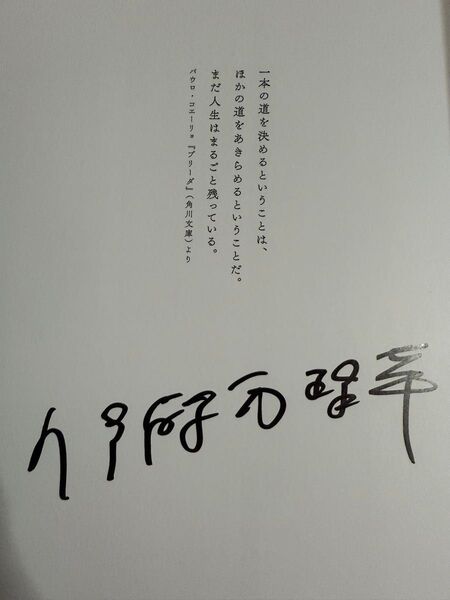 一本の道を決めるということは、
ほかの道をあきらめるということだ。
まだ人生はまるごと残っている。
パウロ・コエーリョ『ブリーダ』(角川文庫)より